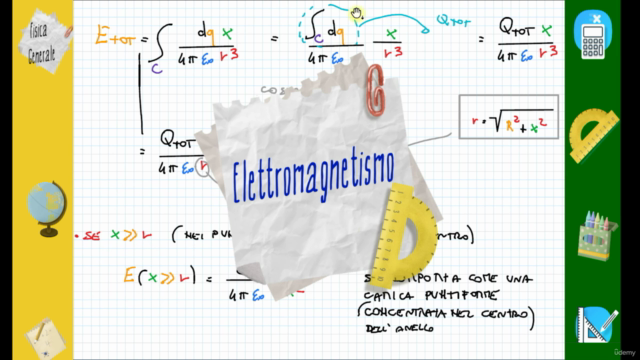 Fisica
Generale
E TOT = ∫C dq x / 4π ε0 r3 = ∫C dq / 4π ε0 x / r3 = QTOT x / 4π ε0 r3
QTOT
r = √R2 + x2
= QTOT / 4π ε0
Elettromagnetismo
• SE x >> r
E (x >> r) = / 4π ε0
COME UNA
CARICA PUNTIFORME
(CONCENTRATA NEL CENTRO
DELL'ANELLO)
udemy